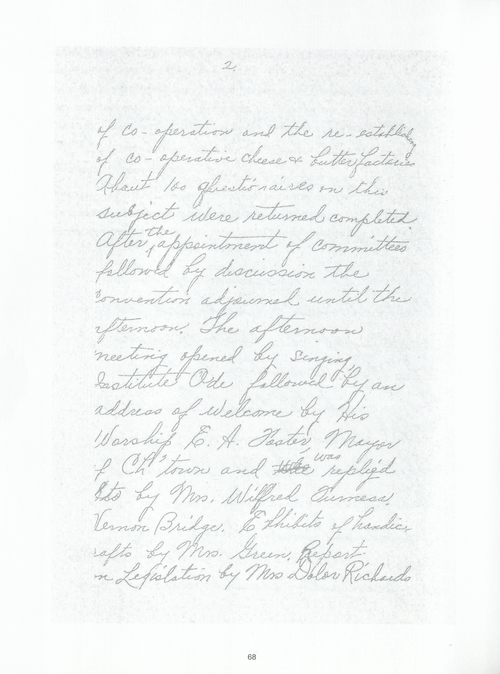 2.
of co-operation and the re-establishing
of co-operative cheese & butter factories
About 100 questionaires on this
subject were returned completed.
After the appointment of committees
followed by discussion the
convention adjourned until the
afternoon. The afternoon
meeting opened by singing
Institute Ode followed by an
address of welcome by His
Worship E. A. Foster, Mayor
of Ch'town and was replied
to by Mrs. Wilfred Furness.
Vernon Bridge. Exhibits of handic-
rafts by Mrs. Green. Report
on Legislation by Mrs Dolor Richards
68